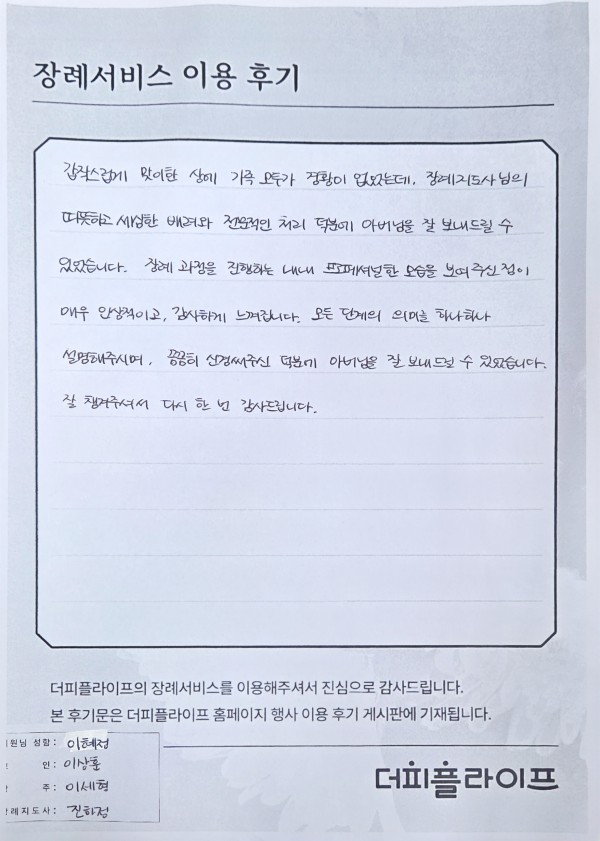 장례서비스 이용 후기
갑작스럽게 맞이한 상에 가족 모두가 경황이 없었는데, 장례지도사님의
따뜻하고 세심한 배려와 전문적인 처리 덕분에 아버님을 잘 보내드릴 수
있었습니다. 장례 과정을 진행하는 내내 프로페셔널한 모습을 보여주신 점이
매우 인상적이고, 감사하게 느껴집니다. 모든 단계의 의미를 하나하나
설명해주시며, 꼼꼼히 신경써주신 덕분에 아버님을 잘 보내드릴 수 있었습니다.
잘 챙겨주셔서 다시 한 번 감사드립니다.
더피플라이프의 장례서비스를 이용해주셔서 진심으로 감사드립니다.
본 후기문은 더피플라이프 홈페이지 행사 이용 후기 게시판에 기재됩니다.
원님 성함: 이혜정
인: 이상훈
주: 이세형
례지도사: 진하정
더피플라이프